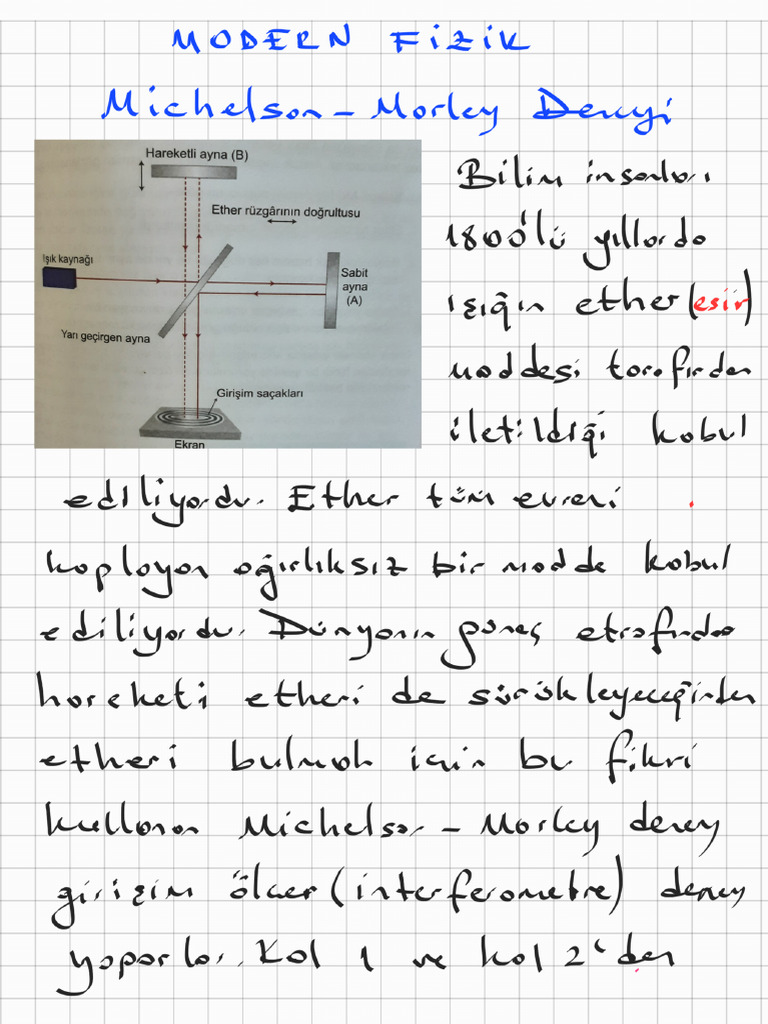 MODERN FİZİK
Michelson - Morley Deneyi
Hareketli ayna (B)
Ether rüzgârının doğrultusu
Işık kaynağı
Sabit
ayna
(A)
Yarı geçirgen ayna
Girişim saçakları
Ekran
Bilim insanları
1800'lü yıllarda
ışığın ether (esir)
maddesi tarafından
iletildiği kabul
ediliyordu. Ether tüm evreni
kaplayan ağırlıksız bir madde kabul
ediliyordu. Dünyanın güneş etrafından
hareketi etheri de sürükleyeceğinden
etheri bulmak için bu fikri
kullanan Michelson - Morley deney
girişim ölçer (interferometre) deney
yaparlar. Kol 1 ve kol 2'den